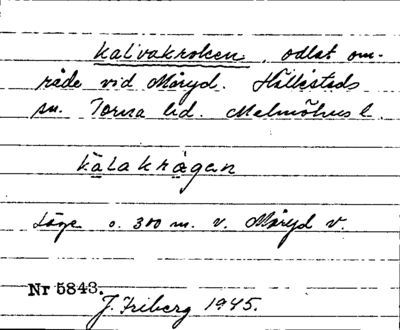 Kalvakroken, odlat om-
råde vid Måryd. Hällestads
sn. Torna hd. Malmöhus l.
kälakrågan
Läge o. 300 m. v. Måryd v.
Nr 5843.
J. Friberg 1945.